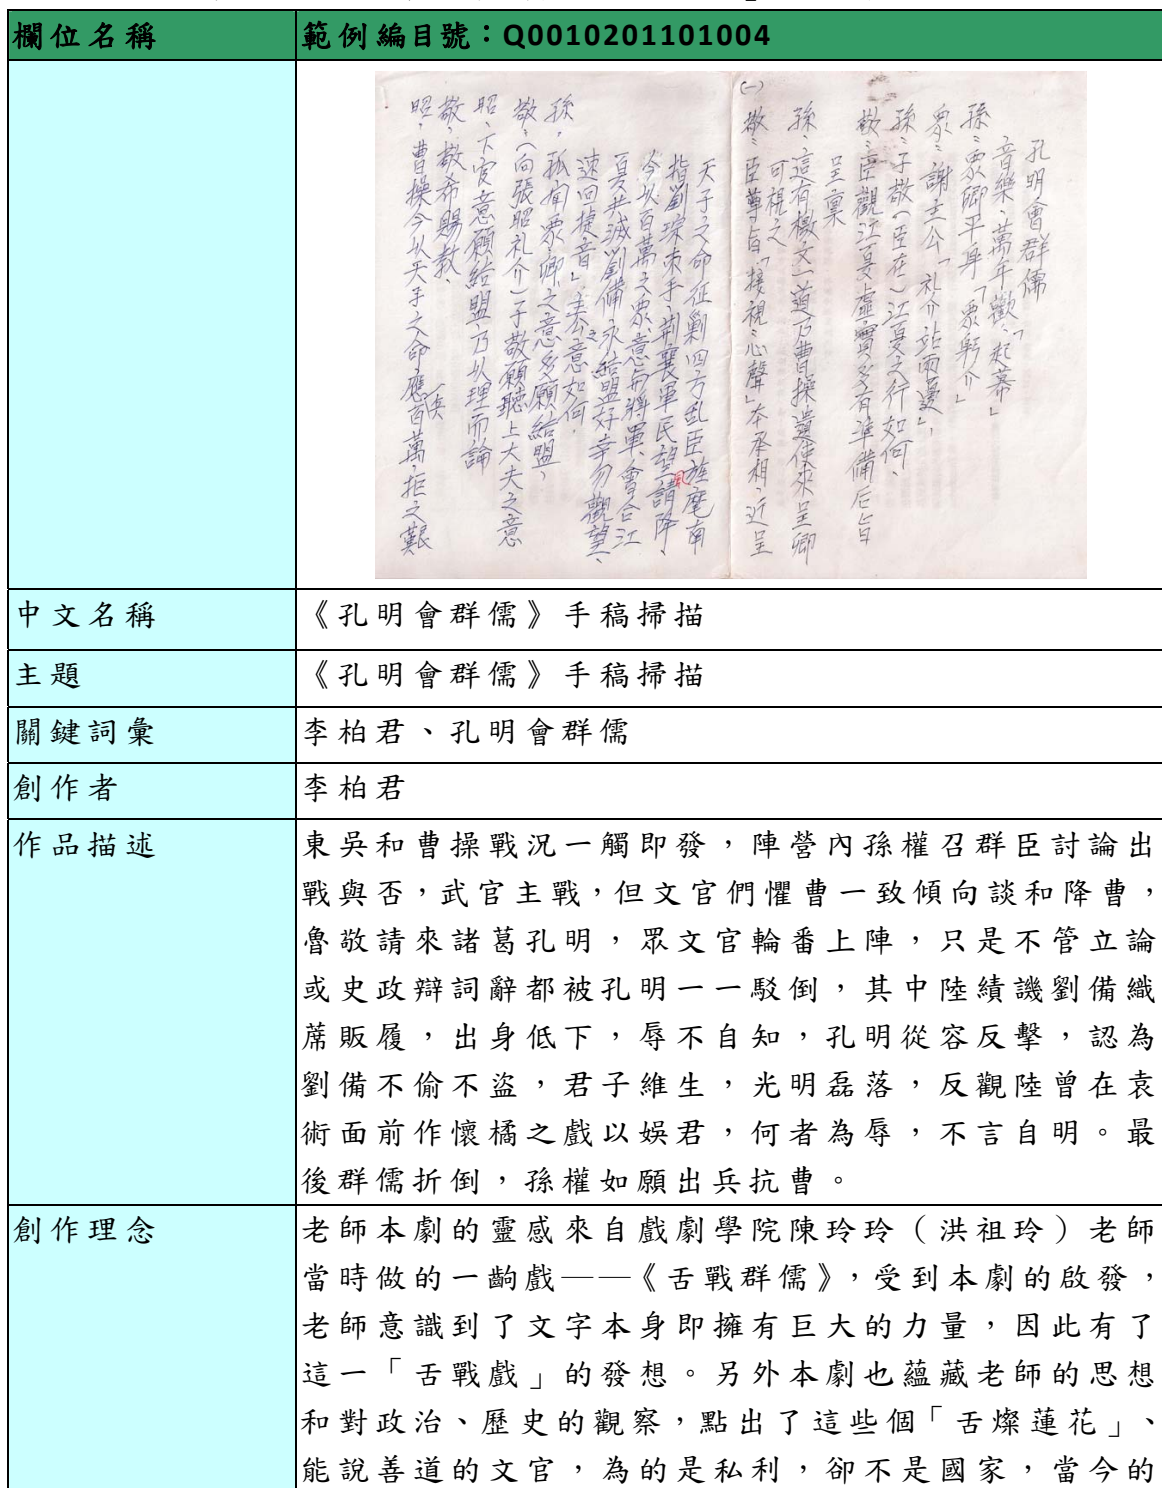 欄位名稱
範例編目號：Q0010201101004
孔明會群儒
音樂、萬年歡、「起幕」
孫：眾卿平身「眾躬介」
眾：謝主公「礼介站兩邊」
孫：子敬（臣在）江夏之行如何、
敬：臣觀江夏虛實多有準備后旨
呈稟
孫、這有檄文一道乃曹操遺使來呈卿
可視之
敬：臣尊旨「接視：心聲」本承相、近呈
天子之命征剿四方乱臣旌麾南
指劉琮束手、荆襄軍民望風請降、
今以百萬之眾意與將軍、會合江
夏共滅劉備、永結盟好幸勿觀望、
速回捷音」主公之意如何、
孫、孤有眾卿之意多願結盟、
敬（向張昭礼介）子敬願聽上大夫之意
昭、下官意願結盟乃以理而論
敬、敬希賜教、
昭、曹操今以天子之命、應百萬、拒之艱
中文名稱
《孔明會群儒》手稿掃描
主題
《孔明會群儒》手稿掃描
關鍵詞彙
李柏君、孔明會群儒
創作者
李柏君
作品描述
東吳和曹操戰況一觸即發，陣營內孫權召群臣討論出
戰與否，武官主戰，但文官們懼曹一致傾向談和降曹，
魯敬請來諸葛孔明，眾文官輪番上陣，只是不管立論
或史政辯詞辭都被孔明一一駁倒，其中陸績譏劉備織
蓆販履，出身低下，辱不自知，孔明從容反擊，認為
劉備不偷不盜，君子維生，光明磊落，反觀陸曾在袁
術面前作懷橘之戲以娛君，何者為辱，不言自明。最
後群儒折倒，孫權如願出兵抗曹。
創作理念
老師本劇的靈感來自戲劇學院陳玲玲（洪祖玲）老師
當時做的一齣戲——《舌戰群儒》，受到本劇的啟發，
老師意識到了文字本身即擁有巨大的力量，因此有了
這一「舌戰戲」的發想。另外本劇也蘊藏老師的思想
和對政治、歷史的觀察，點出了這些個「舌燦蓮花」、
能說善道的文官，為的是私利，卻不是國家，當今的